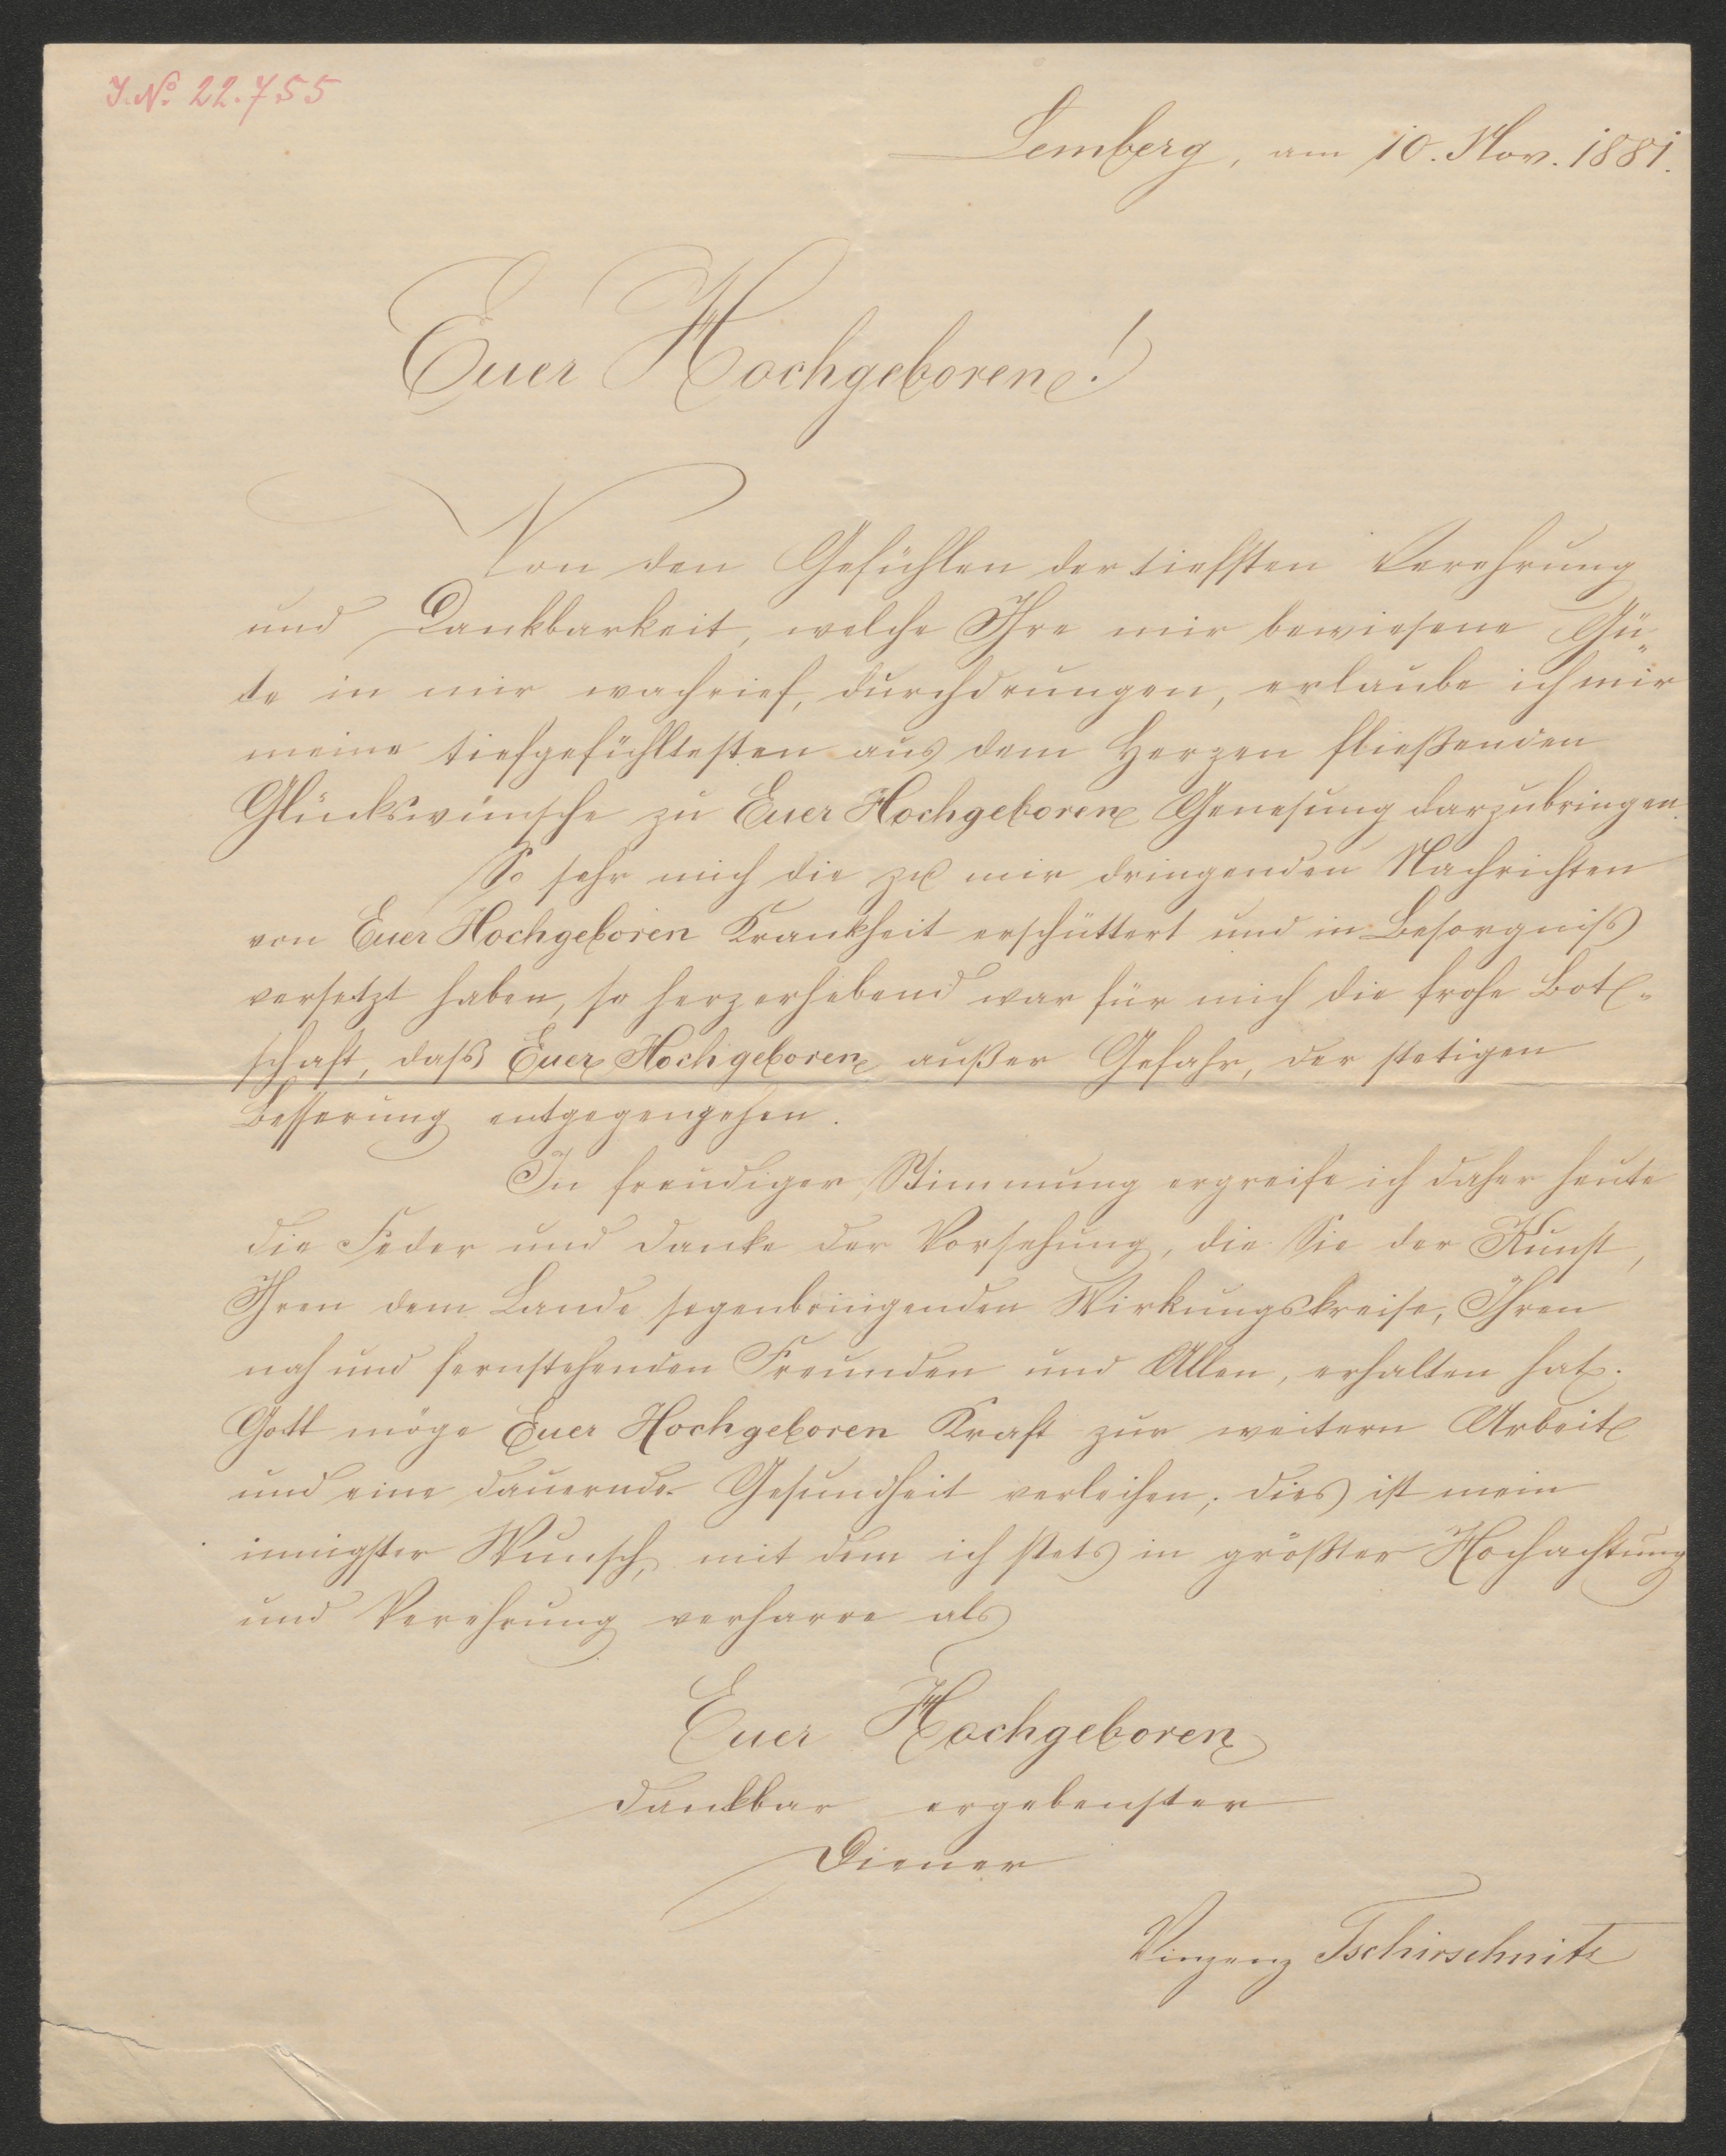 I. No. 22.755
Lemberg, am 10. Nov. 1881.
Euer Hochgeboren!
Von den Gefühlen der tiefsten Verehrung
und Dankbarkeit, welche Ihre mir bewiesene Gü-
te in mir wachrief, durchdrungen, erlaube ich mir
meine tiefgefühltesten aus dem Herzen fließenden
Glückswünsche zu Euer Hochgeboren Genesung darzubringen.
So sehr mich die zu mir dringenden Nachrichten
von Euer Hochgeboren Krankheit erschüttert und in Besorgniß
versetzt haben, so herzerhebend war für mich die frohe Bot-
schaft, daß Euer Hochgeboren außer Gefahr, der stetigen
Besserung entgegengehen.
In freudiger Stimmung ergreife ich daher heute
die Feder und danke der Vorsehung, die Sie der Kunst,
Ihren dem Lande segenbringenden Wirkungskreise, Ihren
nah und fernstehenden Freunden und Allen, erhalten hat.
Gott möge Euer Hochgeboren Kraft zur weitern Arbeit
und eine dauernde Gesundheit verleihen; dies ist mein
innigster Wunsch, mit dem ich stets in größter Hochachtung
und Verehrung verharre als
Euer Hochgeboren
dankbar ergebenster
Diener
Vinzenz Tschirschnitz